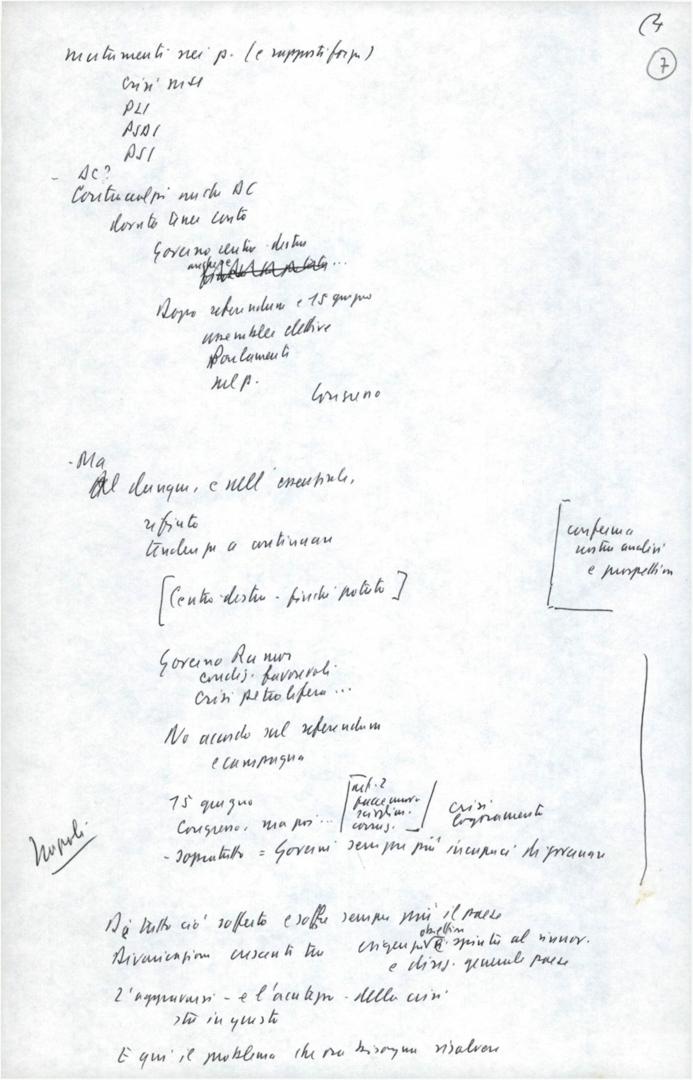 7
mutamenti nei p. (e rapporti forza)
crisi MSI
PLI
PSDI
PSI
- DC?
Contraccolpi anche DC
dovuto tener conto
Governo centro-destra
...
Dopo referendum e 15 giugno
assemblee elettive
Parlamenti
nel p.
Congresso
- Ma
dunque, e nell'essenziale,
rifiuto
tendenza a continuare
[Centro-destra - finché potuto]
conferma
nostra analisi
e prospettiva
Governo Rumor
condiz. favorevoli
Crisi petrolifera...
No accordo sul referendum
e campagna
15 giugno
Congresso, ma poi...
crisi
logoramento
- soprattutto = Governi sempre più incapaci di governare
Napoli
Di tutto ciò sofferto e soffre sempre più il paese
Divaricazione crescente tra esigenza obiettiva e spinta al rinnov.
e disg. generale paese
L'aggravarsi - e l'acutezza - della crisi
sta in questo
E qui il problema che ora bisogna risolvere